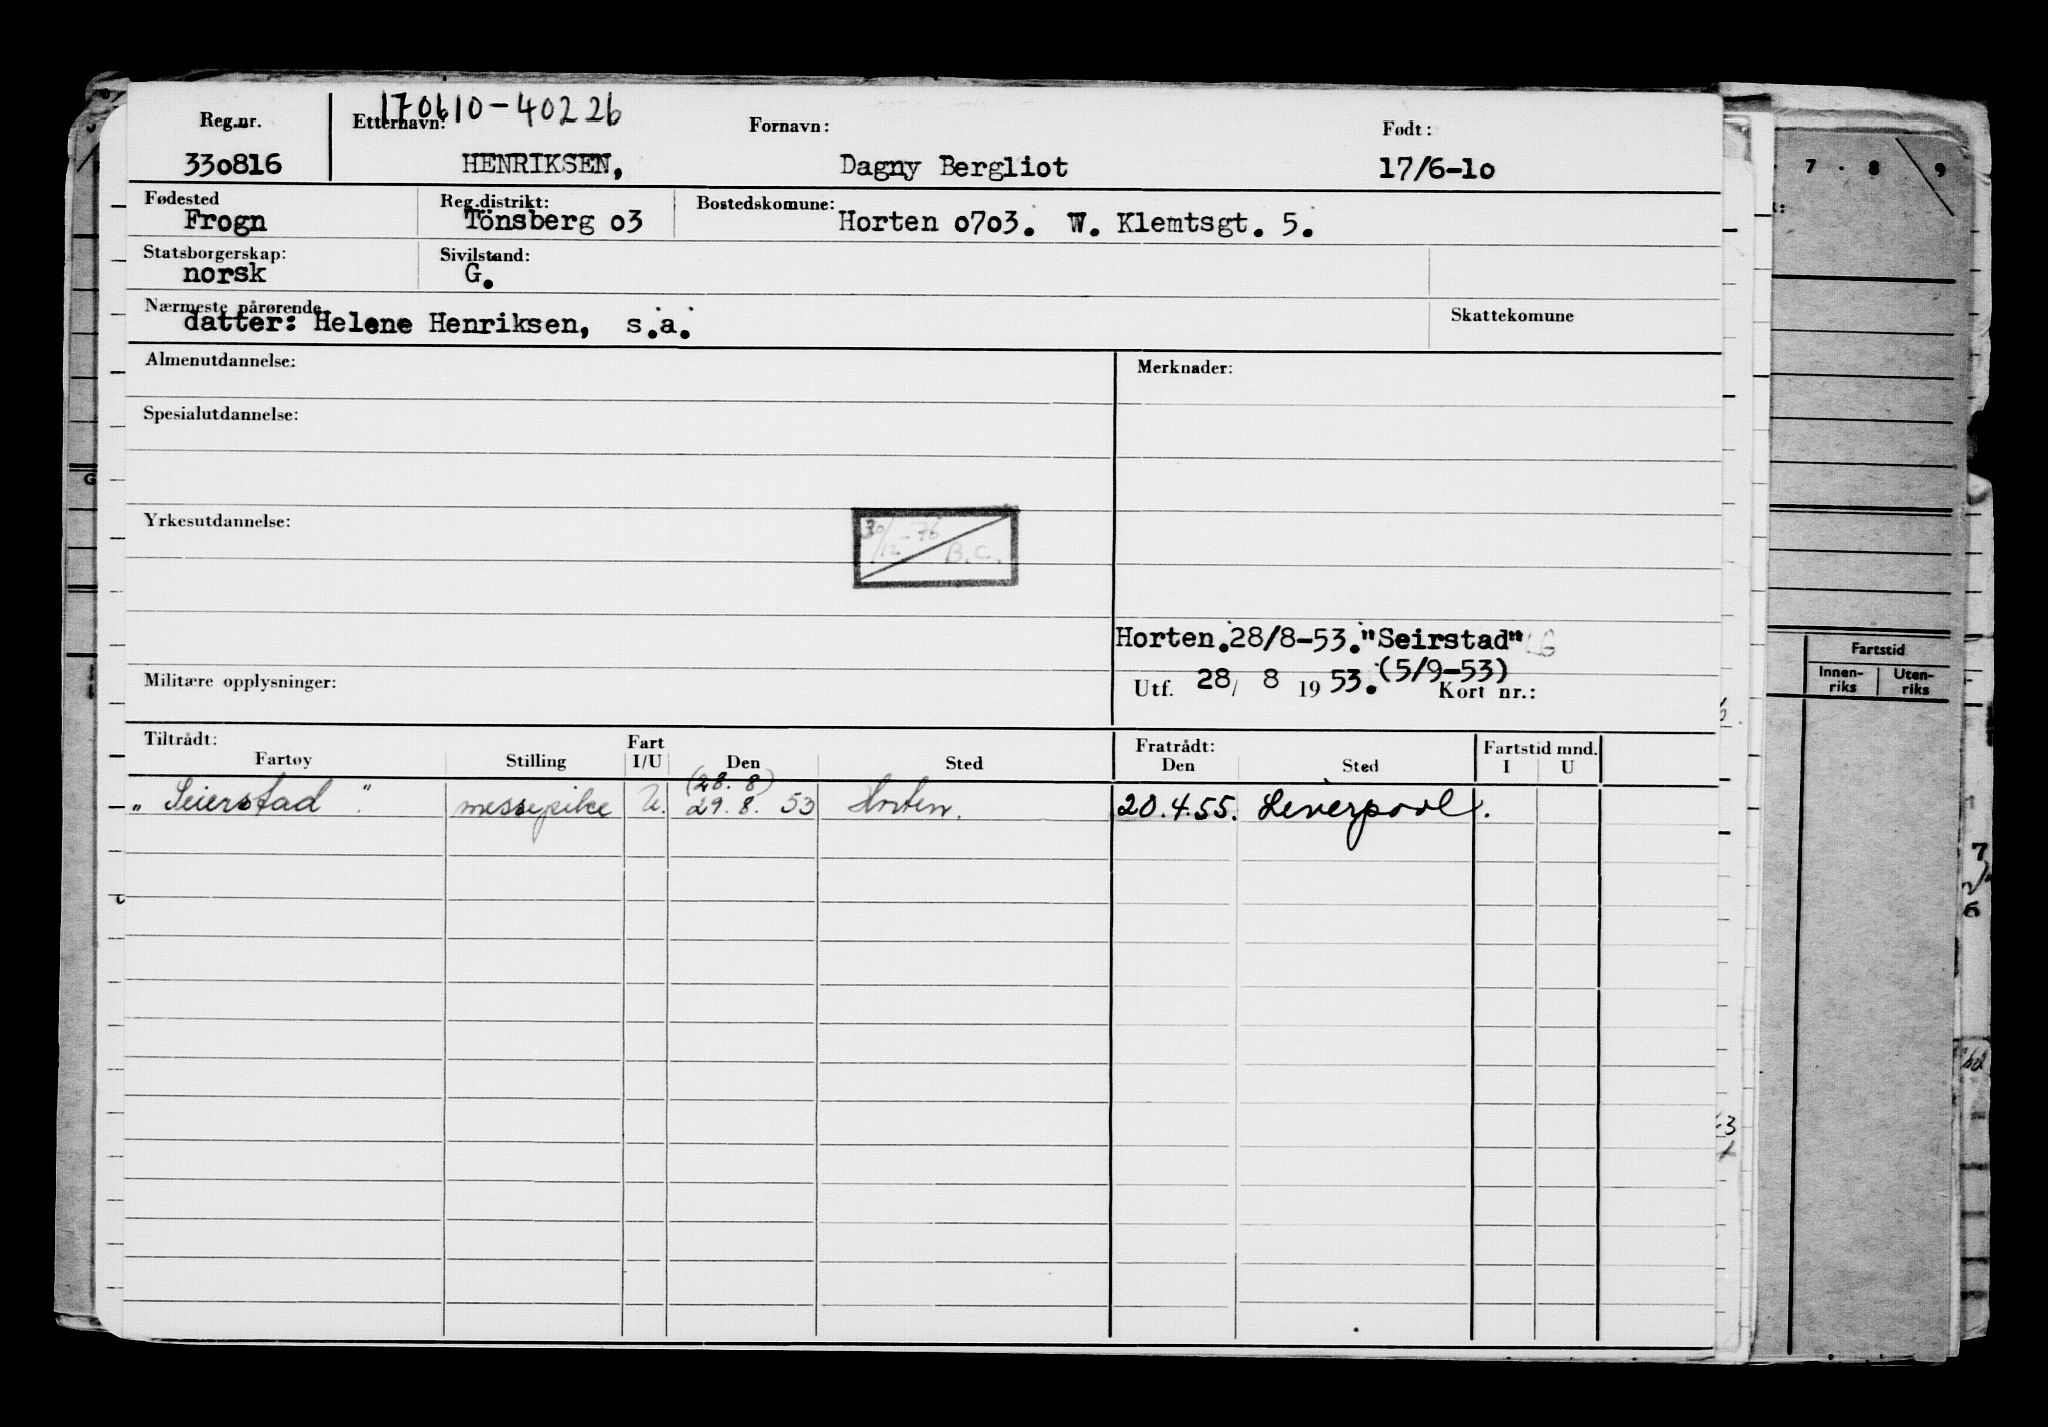 170610-40226
Reg.nr. Etternavn: Fornavn: Født:
330816 HENRIKSEN, Dagny Bergliot 17/6-10
Fødested Reg.distrikt: Bostedskomune:
Frogn Tönsberg 03 Horten 0703. W. Klemtsgt. 5.
Statsborgerskap: Sivilstand:
norsk G.
Nærmeste pårørende Skattekomune
datter: Helene Henriksen, s.a.
Almenutdannelse: Merknader:
Spesialutdannelse:
Yrkesutdannelse:
30/12-76 B.C.
Horten.28/8-53."Seirstad" LG
(5/9-53)
Militære opplysninger: Utf. 28/ 8 1953. Kort nr.:
Tiltrådt: Fart Fratrådt: Fartstid mnd.
Fartøy Stilling I/U Den Sted Den Sted I U
(28. 8)
"Seierstad". messepike U. 29.8. 53 Horten. 20.4.55. Liverpool.
7 . 8 9
Fartstid
Innenriks Utenriks